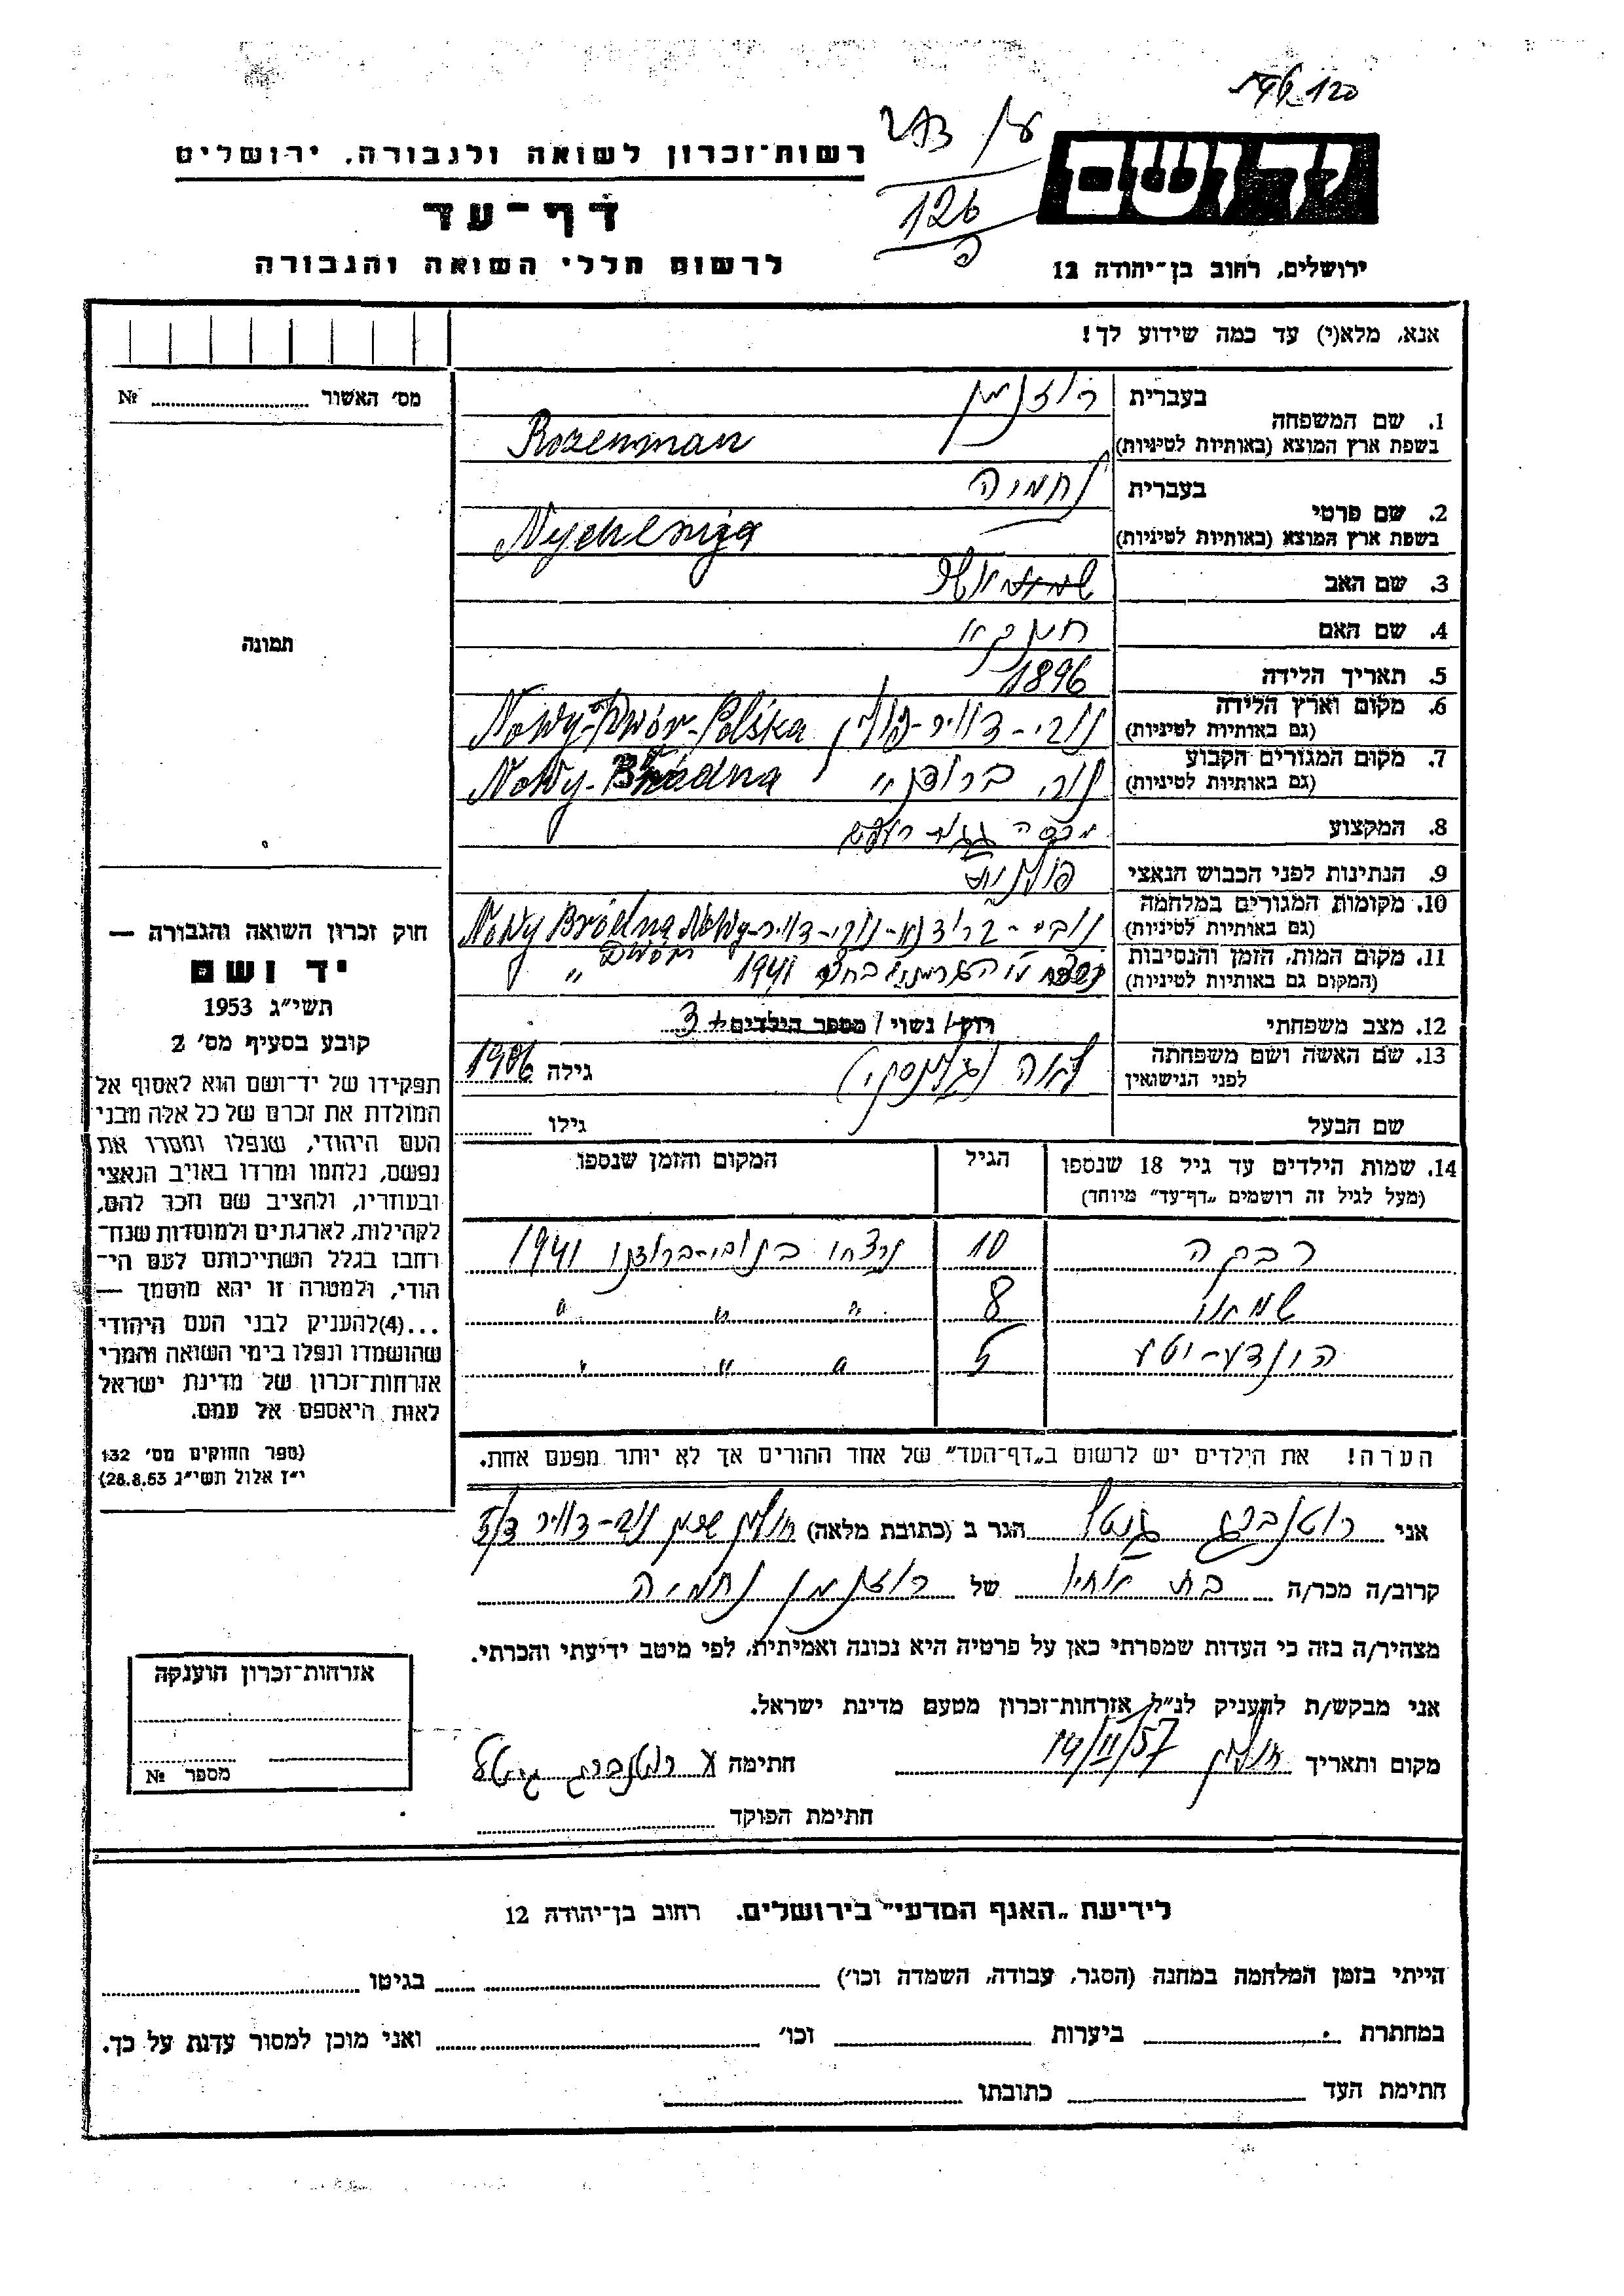 רשות־זכרון לשואה ולגבורה, ירושלים
126
יד ושם
דף־עד
לרשום חללי השואה והגבורה
ירושלים, רחוב בן־יהודה 12
אנא, מלא(י) עד כמה שידוע לך!
מס׳ האשור № 
1. שם המשפחה
בעברית רוזנמן
בשפת ארץ המוצא (באותיות לטיניות) Rozenman
2. שם פרטי
בעברית נחמיה
בשפת ארץ המוצא (באותיות לטיניות) Nychemja
3. שם האב
4. שם האם
5. תאריך הלידה 1896
6. מקום וארץ הלידה נובי-דוויר-פולין Nowy-Dwór-Polska
(גם באותיות לטיניות)
7. מקום המגורים הקבוע Nowy-Brudna
(גם באותיות לטיניות)
8. המקצוע
9. הנתינות לפני הכבוש הנאצי
10. מקומות המגורים במלחמה נובי-ברודנא-נובי-דוויר Nowy Bródna Nowy-Dwór
(גם באותיות לטיניות)
11. מקום המות, הזמן והנסיבות 1941
(המקום גם באותיות לטיניות)
12. מצב משפחתי רווק / נשוי / מספר הילדים 3
13. שם האשה ושם משפחתה לאה גילה 1906
לפני הנישואין
שם הבעל גילו
14. שמות הילדים עד גיל 18 שנספו הגיל המקום והזמן שנספו
(מעל לגיל זה רושמים „דף־עד” מיוחד)
רבקה 10 נרצחו בנובי-ברודנו 1941
8 " " "
5 " " "
הערה! את הילדים יש לרשום ב„דף־העד” של אחד ההורים אך לא יותר מפעם אחת.
אני רוטנברג הגר ב (כתובת מלאה) חולון שכון נובי-דוויר
קרוב/ה מכר/ה בת אחיו של רוזנמן נחמיה
מצהיר/ה בזה כי העדות שמסרתי כאן על פרטיה היא נכונה ואמיתית, לפי מיטב ידיעתי והכרתי.
אני מבקש/ת להעניק לנ״ל אזרחות־זכרון מטעם מדינת ישראל.
מקום ותאריך חולון 14/II/57 חתימה רוטנברג
חתימת הפוקד
תמונה
חוק זכרון השואה והגבורה —
יד ושם
תשי״ג 1953
קובע בסעיף מס׳ 2
תפקידו של יד־ושם הוא לאסוף אל
המולדת את זכרם של כל אלה מבני
העם היהודי, שנפלו ומסרו את
נפשם, נלחמו ומרדו באויב הנאצי
ובעוזריו, ולהציב שם וזכר להם,
לקהילות, לארגונים ולמוסדות שנח־
רבו בגלל השתייכותם לעם הי־
הודי, ולמטרה זו יהא מוסמך —
...(4)להעניק לבני העם היהודי
שהושמדו ונפלו בימי השואה והמרי
אזרחות־זכרון של מדינת ישראל
לאות היאספם אל עמם.
(ספר החוקים מס׳ 132
י״ז אלול תשי״ג 28.8.53)
אזרחות־זכרון הוענקה
מספר №
לידיעת „האגף המדעי” בירושלים, רחוב בן־יהודה 12
הייתי בזמן המלחמה במחנה (הסגר, עבודה, השמדה וכו׳) בגיטו
במחתרת ביערות וכו׳ ואני מוכן למסור עדות על כך.
חתימת העד כתובתו